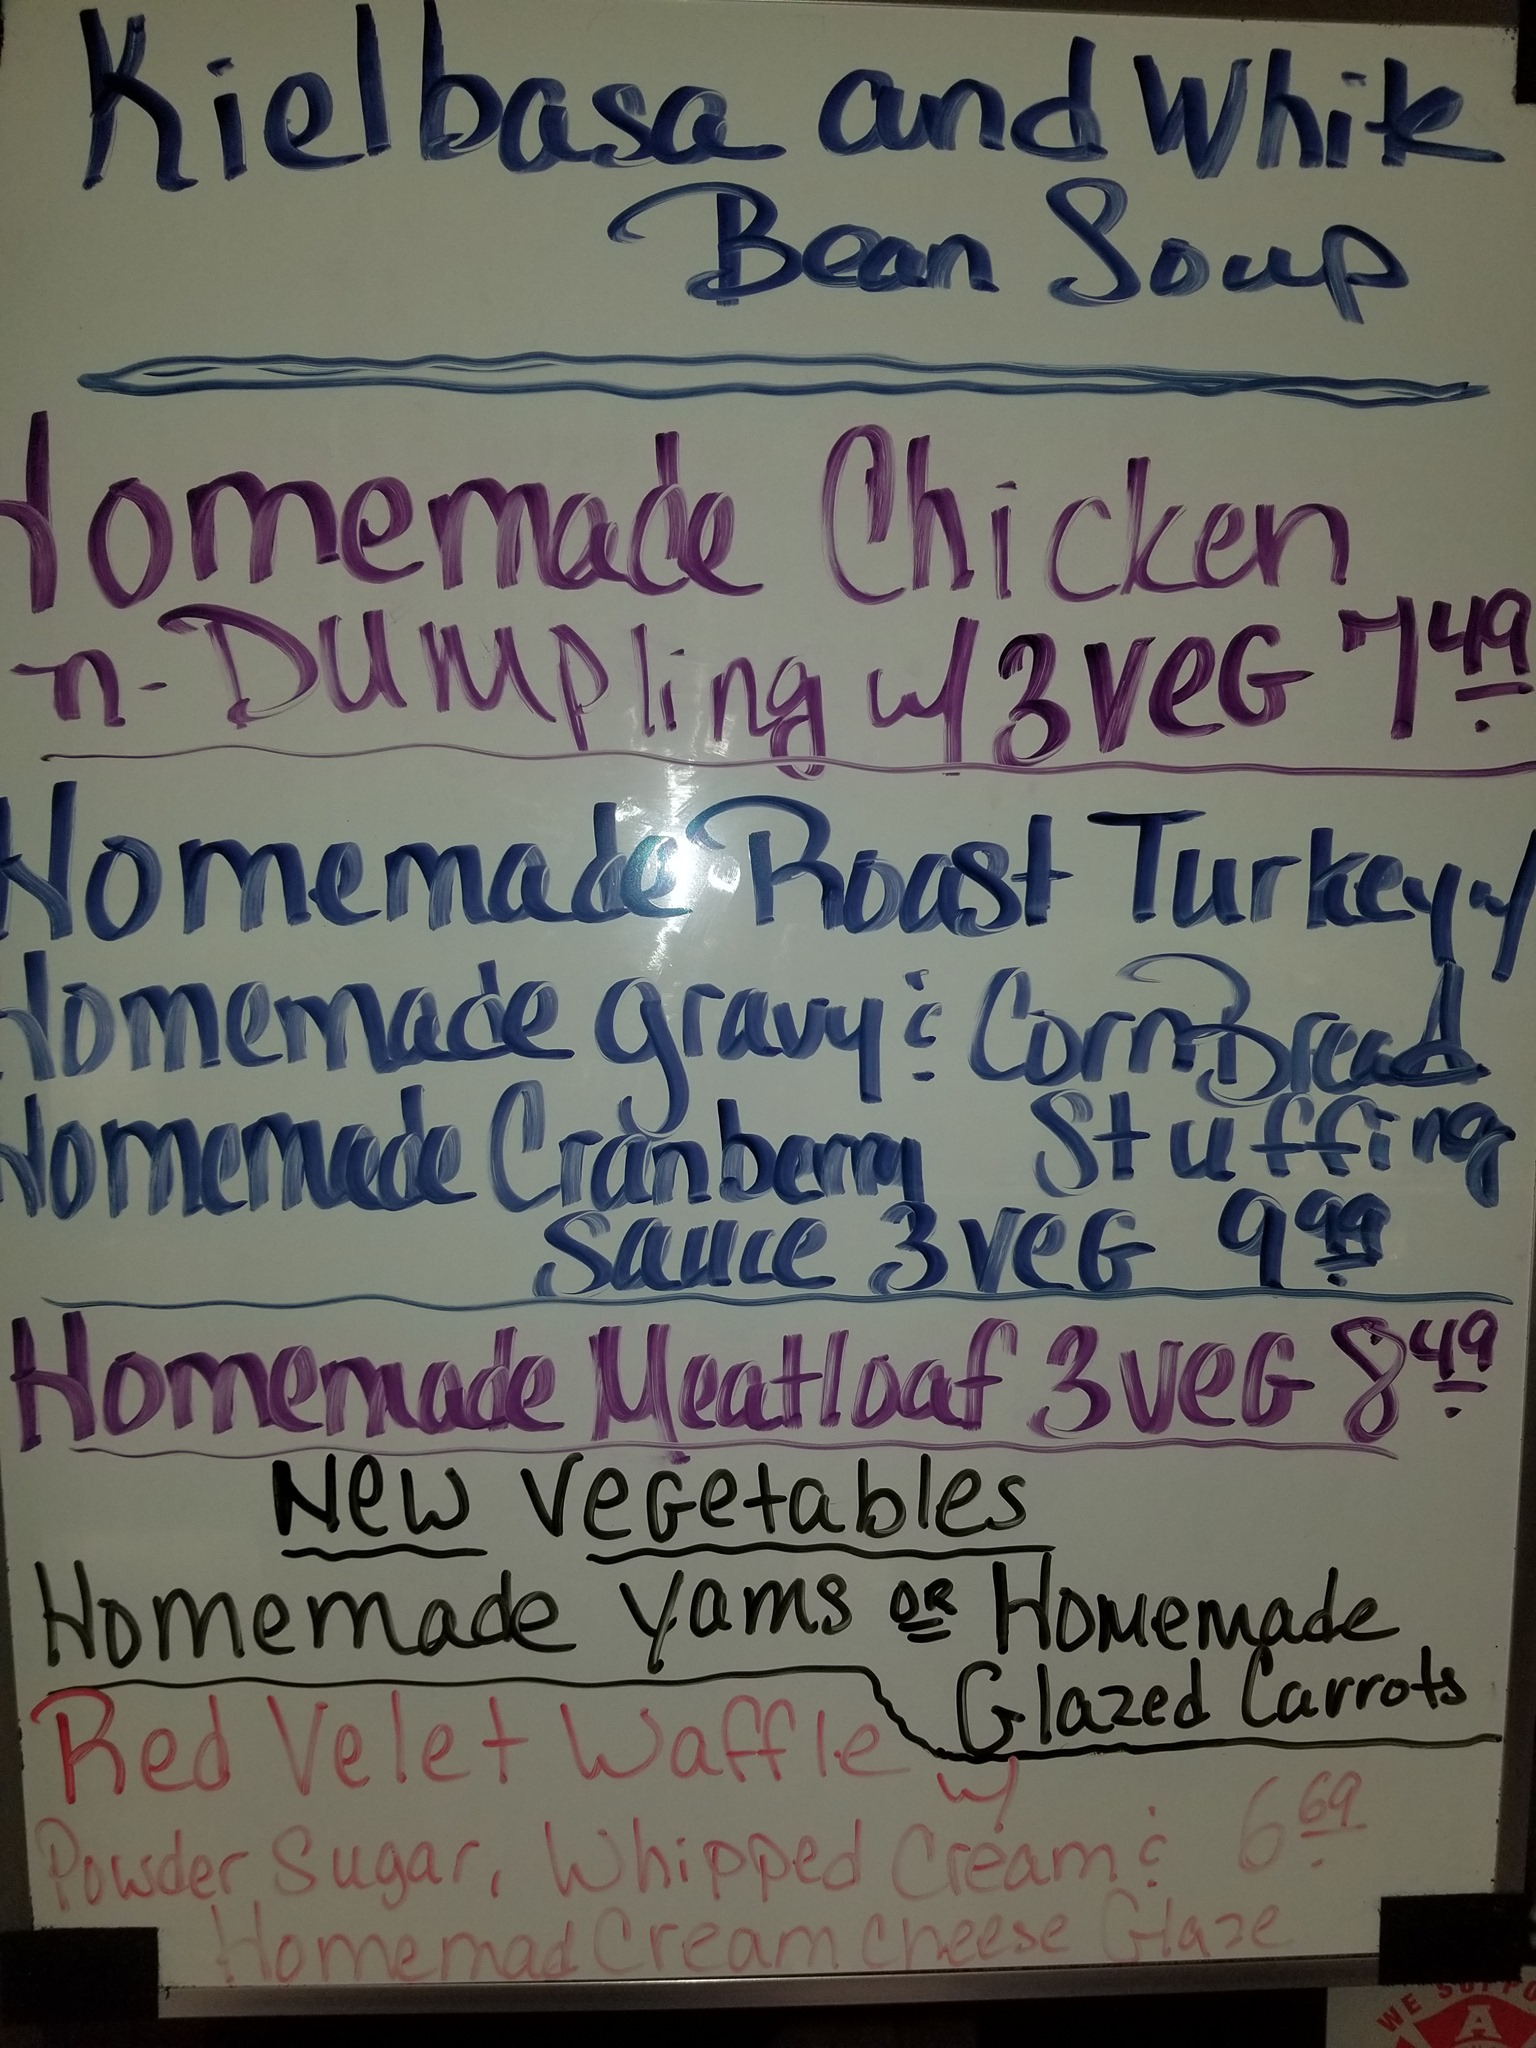 Kielbasa and White
Bean Soup
Homemade Chicken
n-Dumpling w/ 3 VEG 7 49
Homemade Roast Turkey w/
Homemade gravy & CornBread
Homemade Cranberry Stuffing
Sauce 3 VEG 9 99
Homemade Meatloaf 3 VEG 8 49
New Vegetables
Homemade Yams OR Homemade
Glazed Carrots
Red Velet Waffle w/
Powder Sugar, Whipped Cream & 6 69
Homemad Cream Cheese Glaze
WE SUPPO
A